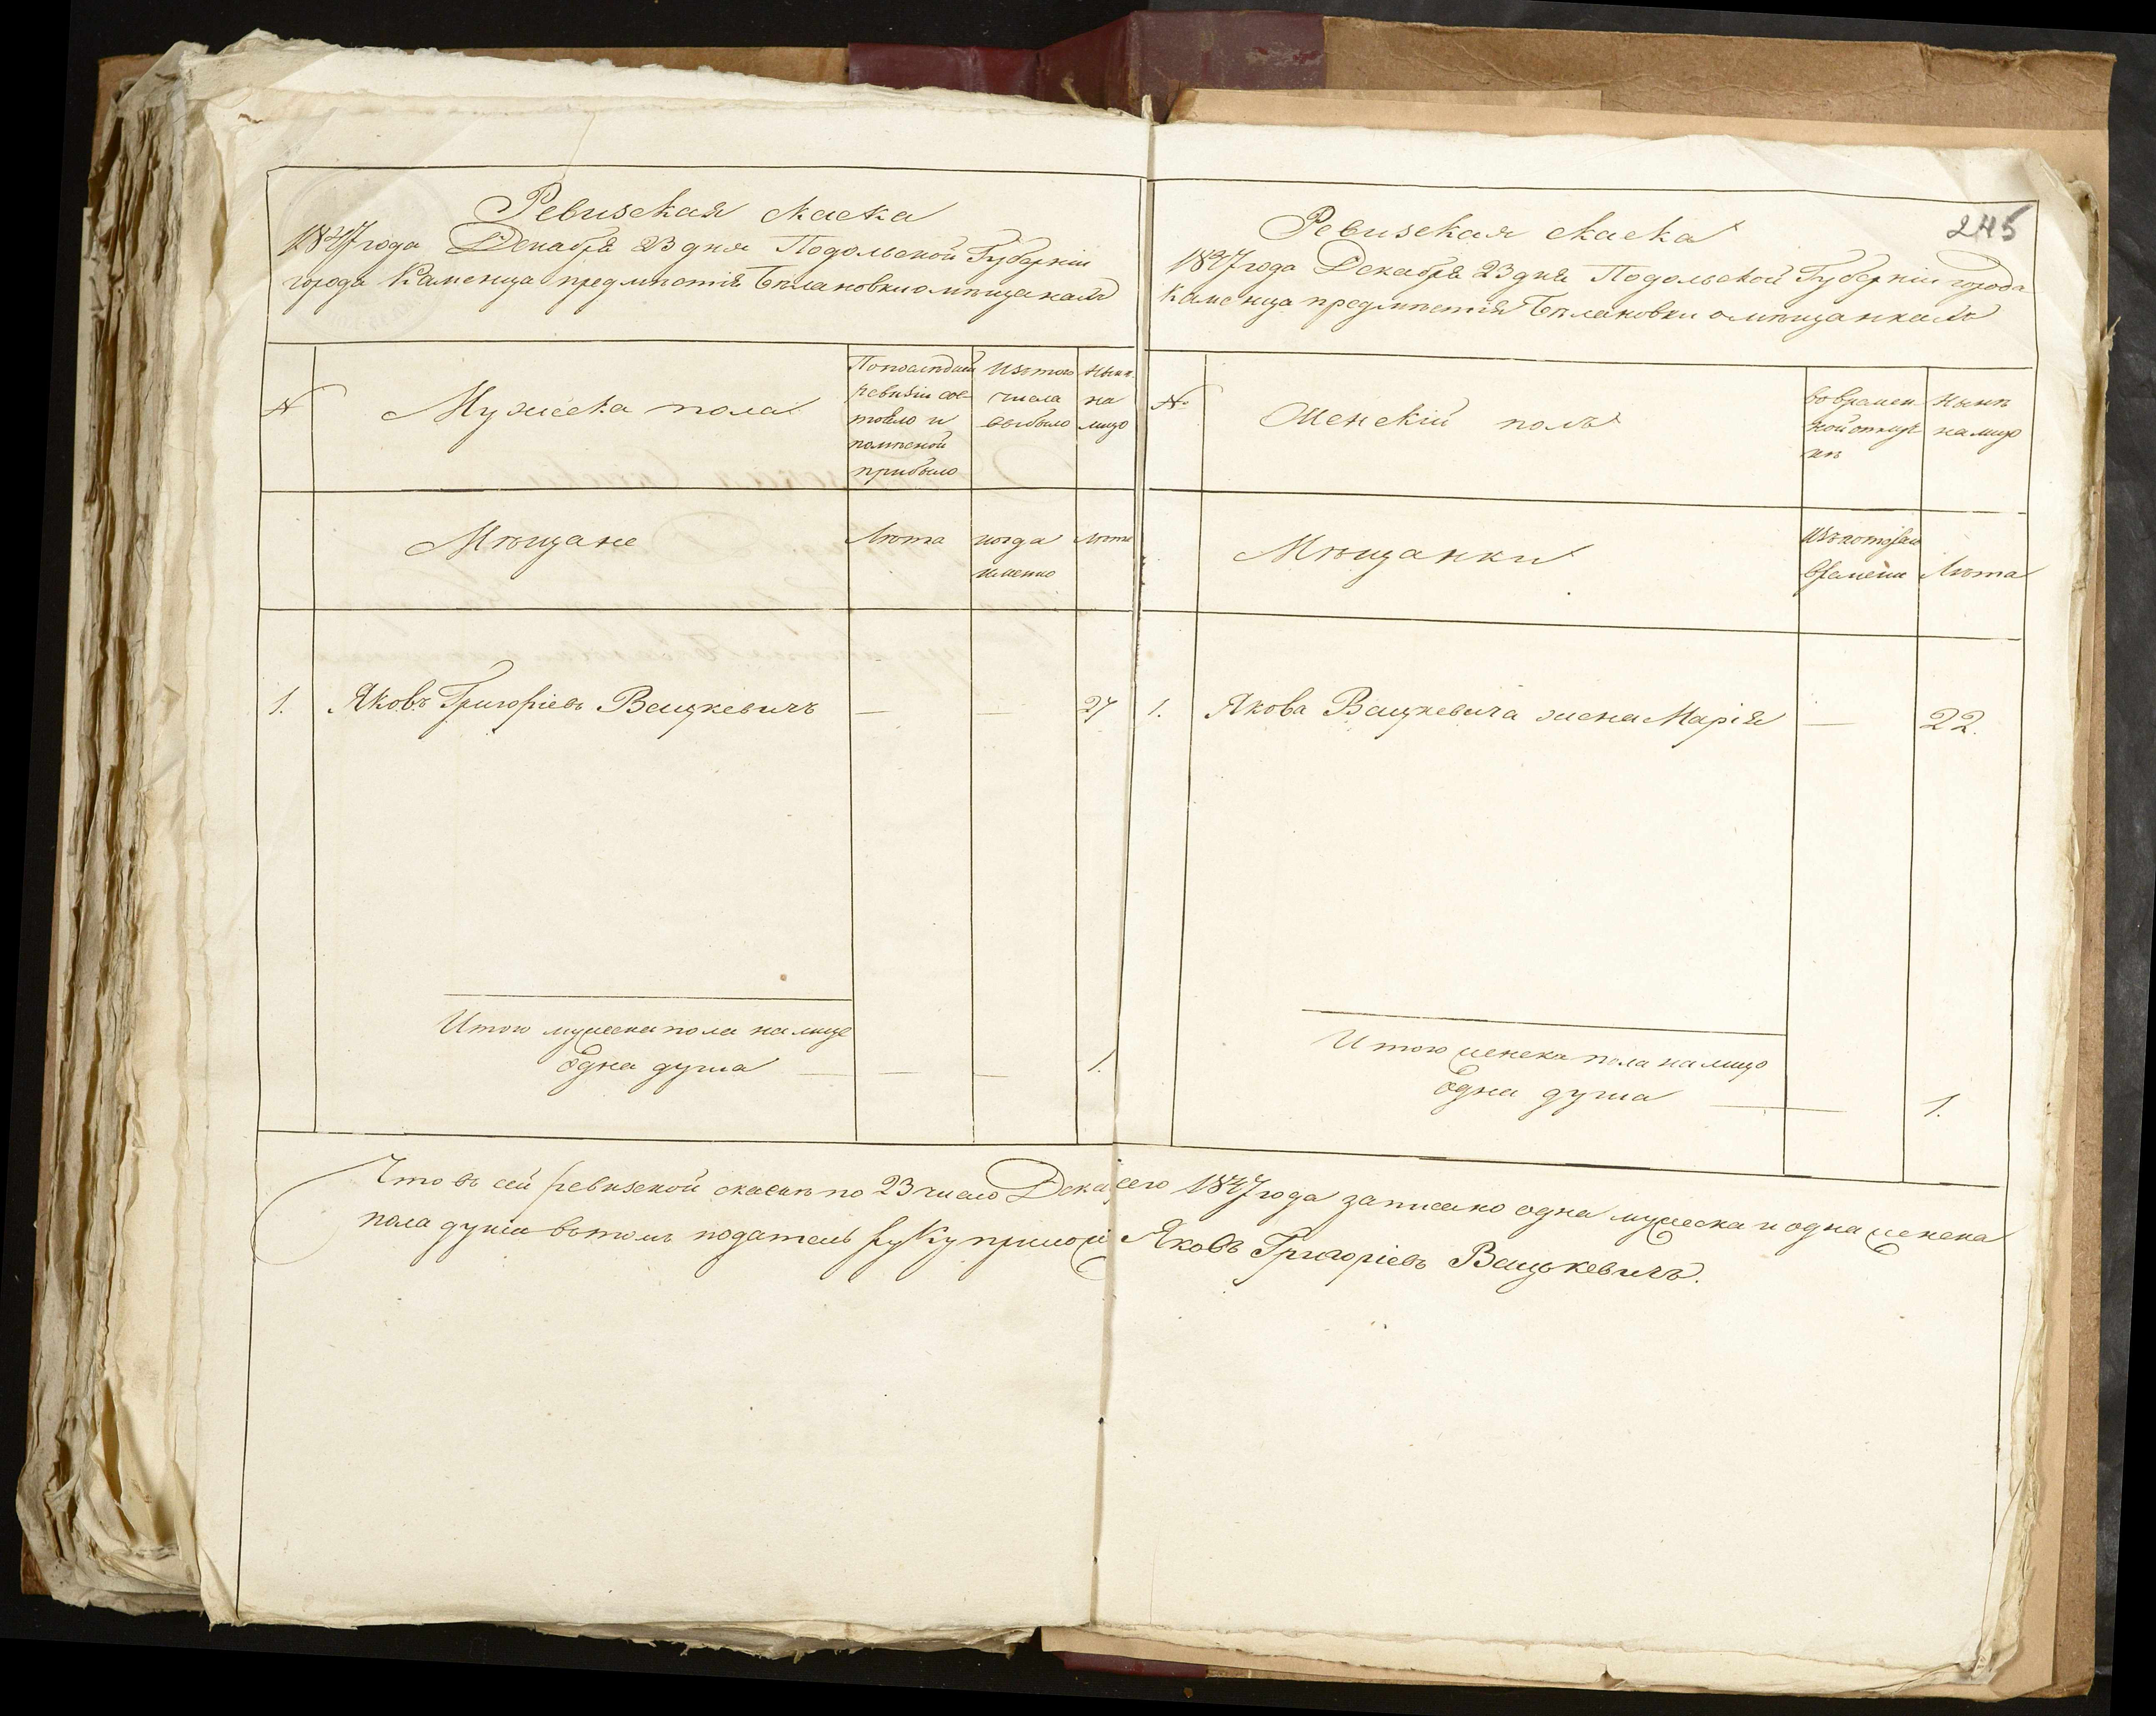 Ревизская скаска
1847 года Декабря 23 дня Подольской Губерніи
города Каменца предмѣстія Бѣлановки о мѣщанахъ
№
Мужеска пола
Попослѣдней
ревизіи сос-
тояло и
послѣ оной
прибыло
Изтого
числа
выбыло
Нынѣ
на
лицо
Мѣщане
Лѣта
когда
именно
Лѣта
1.
Яковъ Григоріевъ Вацкевичъ
—
—
27
Итого мужеска пола налице
одна душа — — — 1.
245
Ревизская скаска
1847 года Декабря 23 дня Подольской Губерніи города
Каменца предмѣстія Бѣлановки о мѣщанкахъ
№
Женскій полъ
Во времен-
ной отлуч-
кѣ
Нынѣ
на лицо
Мѣщанки
Изъ котораго
времени
Лѣта
1.
Якова Вацкевича жена Марія
—
22.
Итого женска пола налицо
одна душа — 1.
Что въ сей ревизской скаскѣ по 23 число Дека сего 1847 года записано одна мужеска и одна женска
пола души вътомъ податель руку приложи Яковъ Григоріевъ Вацькевичъ.